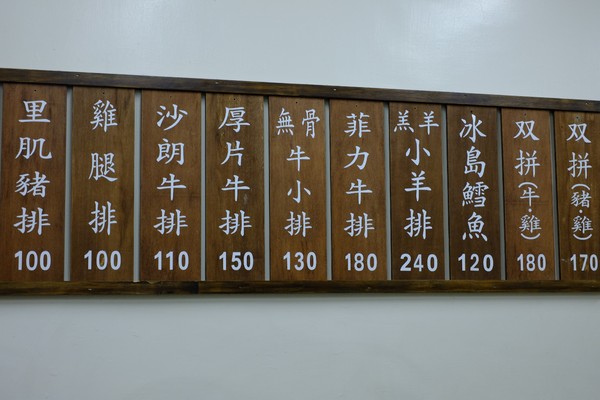 里肌豬排
100
雞腿排
100
沙朗牛排
110
厚片牛排
150
無骨牛小排
130
菲力牛排
180
羔羊小羊排
240
冰島鱈魚
120
双拼(牛雞)
180
双拼(豬.雞)
170